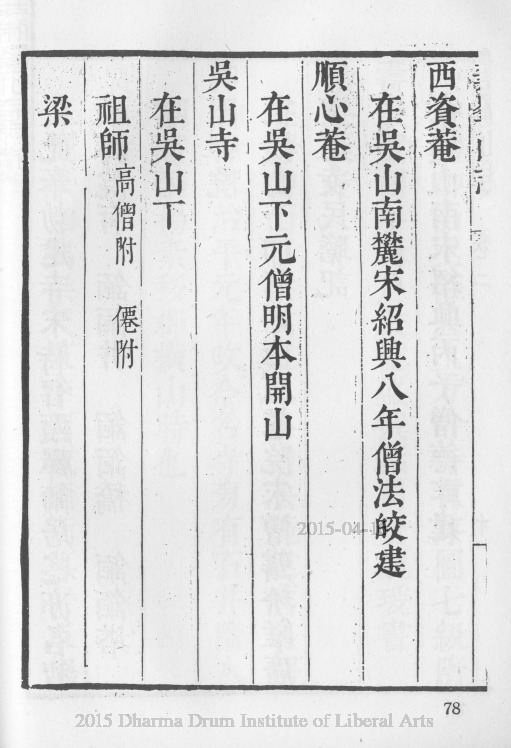 西資菴
在吳山南麓宋紹興八年僧法皎建
順心菴
在吳山下元僧明本開山
吳山寺
在吳山下
祖師 高僧附 僊附
梁
78
2015-04-1
2015 Dharma Drum Institute of Liberal Arts